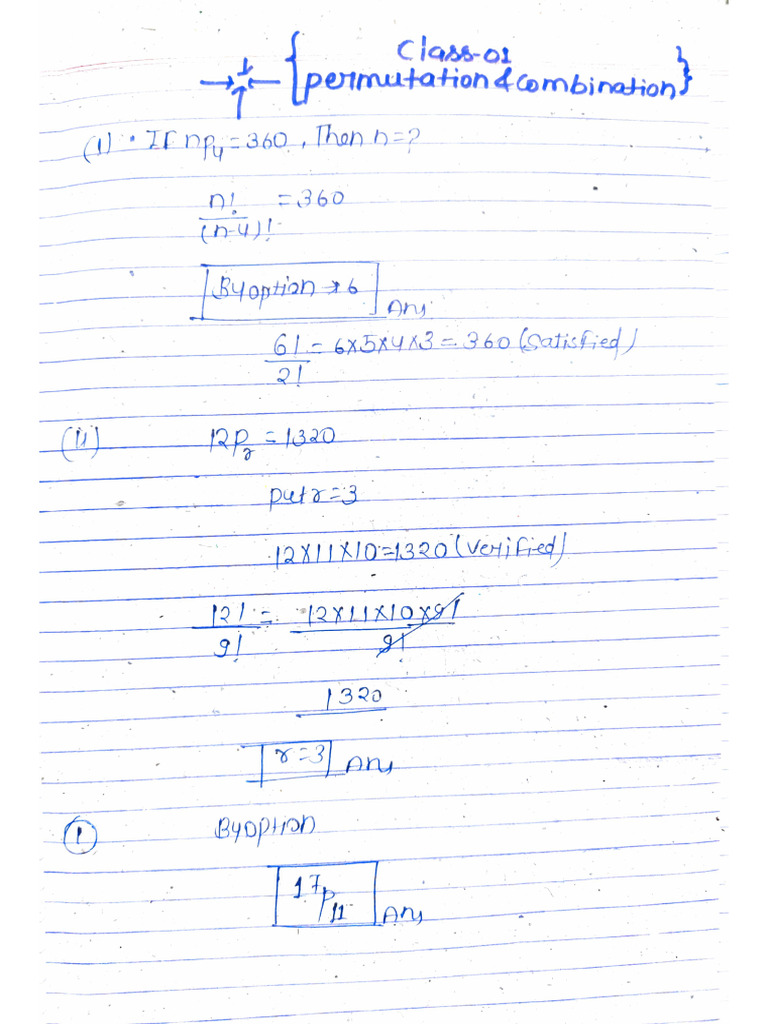 Class-01
{permutation & combination}
(1) • If nP4 = 360, Then n=?
n! = 360
(n-4)!
By option → 6
Ans
6! = 6×5×4×3 = 360 (Satisfied)
2!
(11) 12Pr = 1320
put r=3
12×11×10=1320 (verified)
12! = 12×11×10×9!
9! 9!
1320
r=3 Ans
1 By option
17P11 Ans